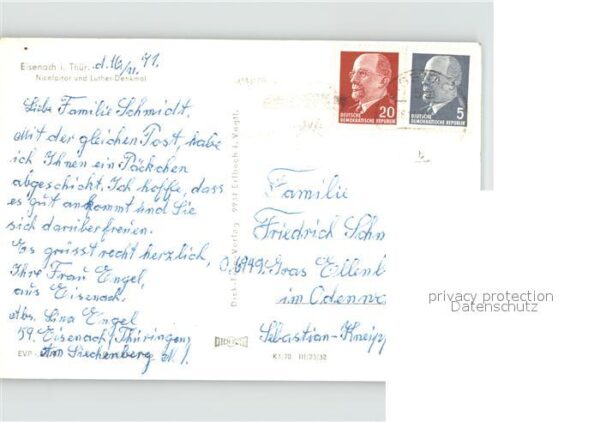 Eisenach i. Thür. d. 16/11. 71.
Nicolaitor und Luther-Denkmal
Liebe Familie Schmidt,
Mit der gleichen Post, habe
ich Ihnen ein Päckchen
abgeschickt. Ich hoffe, dass
es gut ankommt und Sie
sich darüber freuen.
Es grüsst recht herzlich,
Ihre Frau Engel,
aus Eisenach.
Abs. Lina Engel
59. Eisenach/Thüringen
Am Siechenberg
EVP
Verlag 9932 Erlbach i. Vogtl.
20
DEUTSCHE
DEMOKRATISCHE REPUBLIK
5
DEUTSCHE
DEMOKRATISCHE REPUBLIK
Familie
Friedrich Schm
6949 Gras Ellenb
im Odenw
Sebastian-Kneipp
K1/70 III/23/32
privacy protection
Datenschutz